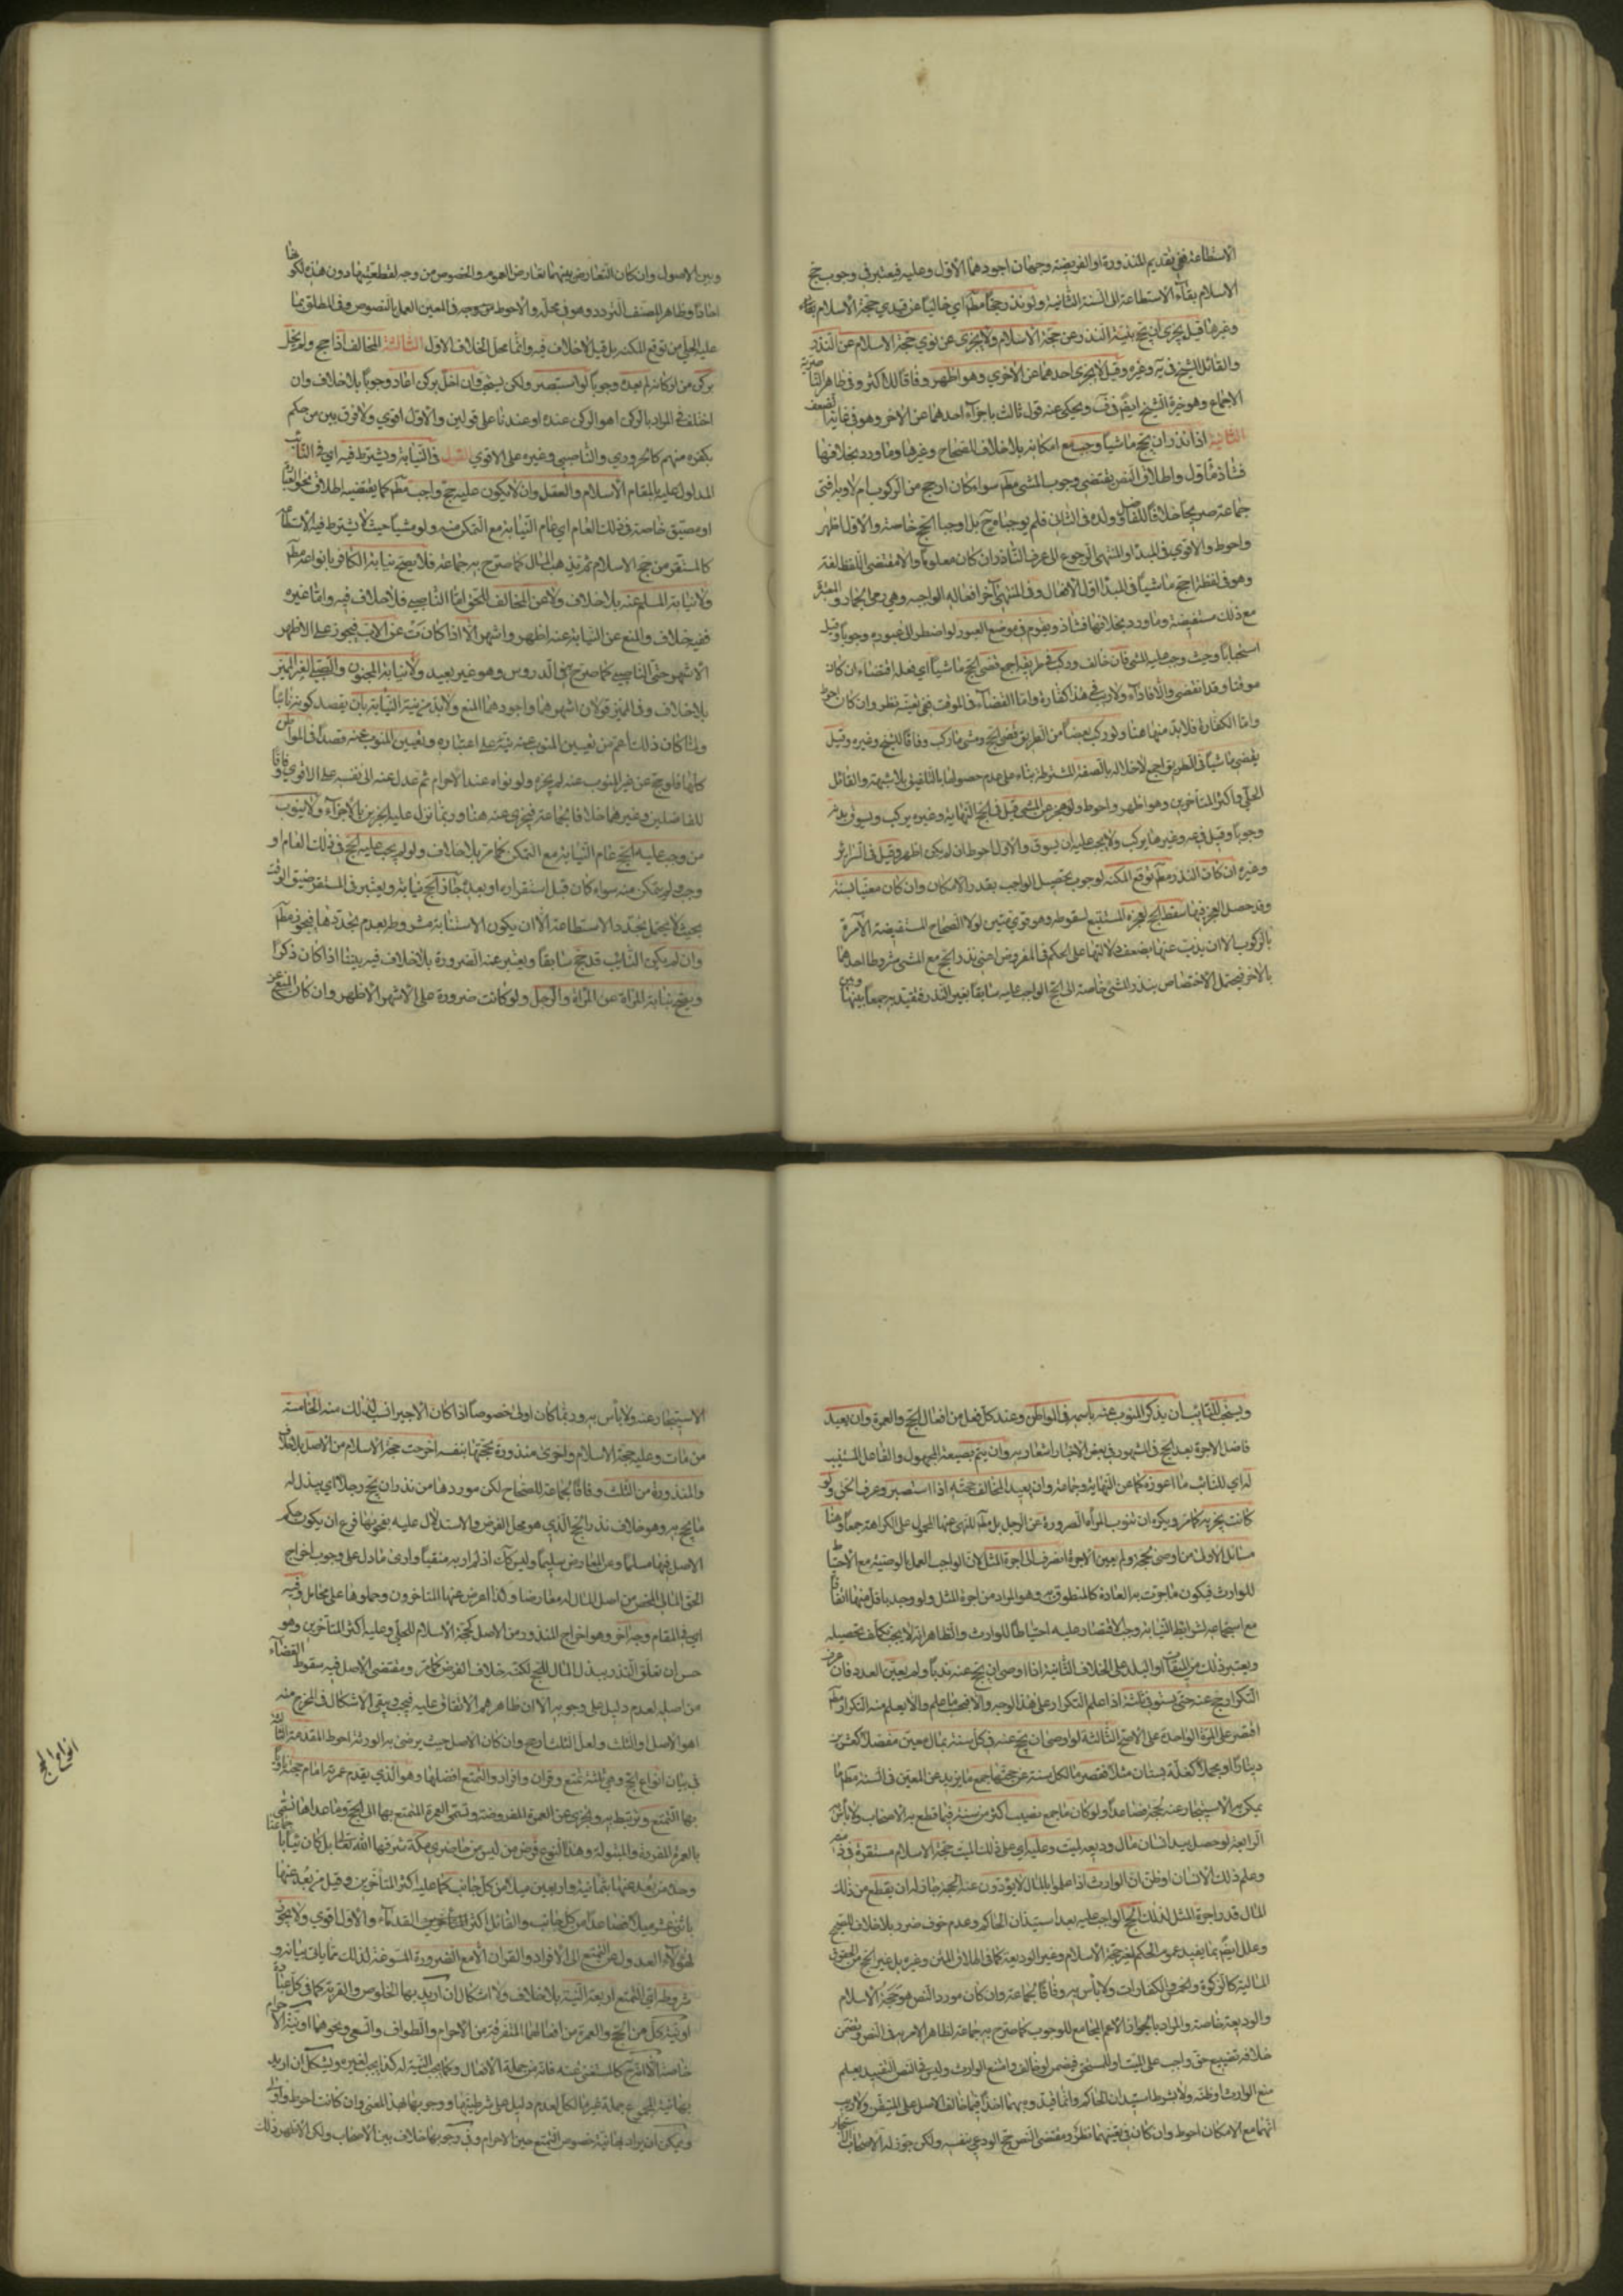 الاستطاعة ففي تقديم المنذورة او الفريضة وجهان اجودهما الاول وعليه فيعتبر في وجوب حج
الاسلام بقاء الاستطاعة الى السنة الثانية ولو نذر حجا مطم اي خاليا عن قيدي حجة الاسلام
وغيرها قيل يجزي ان حج بنية النذر عن حجة الاسلام ولا يجزى عن نوي حجة الاسلام عن النذر
والقائل الشيخ في يه وغيره وقيل لا يجزي احدهما عن الاخرى وهو اظهر وفاقا للاكثر وفي ظاهر
الاجماع وهو خيرة الشيخ ايضم في ف ويحكى عنه قول ثالث باجزاء احدهما عن الاخر وهو في غاية الضعف
الثانية اذا نذر ان يحج ماشيا وجب مع امكانه بلا خلاف للصحاح وغيرها وما ورد بخلافها
فشاذ مأول واطلاق النص يقتضى وجوب المشي مطم سواء كان ارجح من الركوب ام لا وبه افتى
جماعة صريحا خلافا للفاضل وولده في الثاني فلم يوجباه ح بل اوجبا الحج خاصة والاول اظهر
واحوط والاقوي في المبدأ والمنتهى الرجوع الى عرف الناذر ان كان معلوما والا فمقتضى اللفظ لغة
وهو في لفظة احج ماشيا في المبدأ اول الافعال وفي المنتهى آخر افعاله الواجبه وهي رمي الجمار والمعتبرة
مع ذلك مستفيضة وما ورد بخلافها فشاذ ويقوم في موضع العبور لو اضطر الى عبوره وجوبا وقيل
استحبابا وحيث وجب عليه المشي فان خالف وركب في طريقه اجمع قضى الحج ماشيا اي فعله اقتضاء ان كان
موقتا وقد انقضى والا فاداء ولا ريب في هذا كفارة واما القضاء في الموقت ففي تعينه نظر وان كان احوط
واما الكفارة فلا بد منها هنا ولو ركب بعضا من الطريق قضى الحج ومشى ما ركب وفاقا للشيخ وغيره وقيل
يقضى ماشيا في الطريق اجمع لاخلاله بالصفة المشترطة بناء على عدم حصولها بالتلفيق بلا شبهة والقائل
الحلي واكثر المتأخرين وهو اظهر واحوط ولو عجز عن المشى قيل في الحج النهاية وغيره يركب ويسوق بدنة
وجوبا وقيل في عه وغيرها يركب ولا يجب عليه ان يسوق والاول احوط ان لم يكن اظهر وقيل في السرائر
وغيره ان كان النذر مطم توقع المكنه لوجوب تحصيل الواجب بقدر الامكان وان كان معينا بسنة
وقد حصل العجز فيها سقط الحج لعجزه المستتبع لسقوطه وهو قوي متين لولا الصحاح المستفيضة الآمرة
بالركوب الا ان يذب عنها بضعف دلالتها على الحكم في المفروض اعني نذر الحج مع المشى مشروطا احدهما
بالاخر فيحتمل الاختصاص بنذر المشي خاصة الى الحج الواجب عليه سابقا بغير النذر فتقيد به جمعا بينها وبين
وبين الاصول وان كان التعارض بينهما تعارض العموم والخصوص من وجه لقطعيتها دون هذه لكونها
احادا وظاهر المصنف التردد وهو في محله والاحوط من وجه في المعين العمل بالنصوص وفي المطلق بما
عليه الحلي من توقع المكنه بل قيل لا خلاف فيه وانما محل الخلاف الاول الثالثة المخالف اذا حج ولم يخل
بركن من اركانه لم يعده وجوبا لو استبصر ولكن يستحب وان اخل بركن اعاد وجوبا بلا خلاف وان
اختلف في المراد بالركن اهو الركن عنده او عندنا على قولين والاول اقوي ولا فرق بين من حكم
بكفره منهم كالحروري والناصبي وغيره على الاقوي القول في النيابة ويشترط فيه اي في النائب
المدلول عليه بالمقام الاسلام والعقل وان لا يكون عليه حج واجب مطم كما يقتضيه اطلاق نحو العبارة
او مضيق خاصة في ذلك العام اي عام النيابة مع التمكن منه ولو مشيا حيث لا يشترط فيه الاستطاعة
كالمستقر من حج الاسلام ثم يذهب المال كما صرح به جماعة فلا يصح نيابة الكافر بانواعه مطم
ولا نيابة المسلم عنه بلا خلاف ولا عن المخالف للحق اما الناصبي فلا خلاف فيه واما غيره
ففيه خلاف والمنع عن النيابة عنه اظهر واشهر الا اذا كانت عن الاب فيجوز على الاظهر
الاشهر حتى الناصبي كما صرح به في الدروس وهو غير بعيد ولا نيابة المجنون والصبي الغير المميز
بلا خلاف وفي المميز قولان اشهرهما واجودهما المنع ولا بد من نية النيابة بان يقصد كونه نائبا
ولما كان ذلك اعم من تعيين المنوب عنه نبه على اعتباره وتعيين المنوب عنه قصدا في المواطن
كلها فلو حج عن غير المنوب عنه لم يجزه ولو نواه عند الاحرام ثم عدل عنه الى نفسه على الاقوي وفاقا
للفاضلين وغيرهما خلافا لجماعة فيجزي عنه هنا وربما نزل عليه الخبرين بالاجزاء ولا ينوب
من وجب عليه الحج عام النيابة مع التمكن كما مر بلا خلاف ولو لم يجب عليه الحج في ذلك العام او
وجب ولم يتمكن منه سواء كان قبل استقراره او بعده جاز الحج نيابة ويعتبر في المستقر ضيق الوقت
بحيث لا يحتمل تجدد الاستطاعة الا ان يكون الاستنابة مشروطة بعدم تجددها فيجوز مطم
وان لم يكن النائب قد حج سابقا ويعتبر عنه الضرورة بلا خلاف فيه بيننا اذا كان ذكرا
ويصح نيابة المرأة عن المرأة والرجل ولو كانت ضرورة على الاشهر الاظهر وان كان المنع عن
ويستحب للنائب ان يذكر المنوب عنه باسمه في المواطن وعند كل فعل من افعال الحج والعمرة وان يعيد
فاضل الاجرة بعد الحج في المشهور وفي بعض الاخبار اشعار به وان يتم بصيغة المجهول والفاعل المستنيب
له اي للنائب ما اعوزه كما عن النهاية وجماعة وان يعيد المخالف حجته اذا استبصر وعرف الحق ولو
كانت مجزية كما مر ويكره ان تنوب المرأة الصرورة عن الرجل بل مطم للنهى عنها المحمول على الكراهة جمعا وهنا
مسائل الاولى من اوصى بحجة ولم يعين الاجرة انصرف الى اجرة المثل لان الواجب العمل بالوصية مع الاحتياط
للوارث فيكون ما جرت به العادة كالمنطوق به وهو المراد من اجرة المثل ولو وجد باقل منها اتفاقا
مع استجماعه لشرائط النيابة وجب الاقتصار عليه احتياطا للوارث والظاهر انه لا يجب تكلف تحصيله
ويعتبر ذلك من الميقات او البلد على الخلاف الثانية اذا اوصى ان يحج عنه ندبا ولم يعين العدد فان عرف
التكرار حج عنه حتى يستوفى ثلثه اذا علم التكرار على هذا الوجه والا فبحسب ما علم والا يعلم منه التكرار مطم
اقتصر على المرة الواحدة على الاصح الثالثة لو اوصى ان يحج عنه في كل سنة بمال معين مفصل كعشرين
دينارا او مجملا كغلة بستان مثلا فقصر مال كل سنة عن حجتها جمع ما يزيد عن المعين في السنة مطم ما
يمكن به الاستيجار عنه لحجة فصاعدا ولو كان ما جمع نصيب اكثر من سنة فيما قطع به الاصحاب ولا بأس
الرابعة لو حصل بيد انسان مال وديعة لميت وعليه اي على ذلك الميت حجة الاسلام مستقرة في ذمته
وعلم ذلك الانسان او ظن ان الوارث اذا علموا بالمال لا يؤدون عنه الحجة جاز له ان يقطع من ذلك
المال قدر اجرة المثل لذلك الحج الواجب عليه بعد استيذان الحاكم وعدم خوف ضرر بلا خلاف للصحيح
وعلل ايضم بما يفيد عموم الحكم لغير حجة الاسلام وغير الوديعة كما في اطلاق المتن وغيره بل غير الحج من الحقوق
المالية كالزكوة والخمس والكفارات ولا بأس به وفاقا لجماعة وان كان مورد النص هو حجة الاسلام
والوديعة خاصة والمراد بالجواز الاعم المجامع للوجوب كما صرح به جماعة لظاهر الامر به في النص وتضمن
خلافه تضييع حق واجب على الميت او المستحق فيضمن لو خالف وامتنع الوارث وليس في النص التقييد بعلم
منع الوارث او ظنه ولا بشرط استيذان الحاكم وانما قيدوه بهما اخذا فيما خالف الاصل على المتيقن ولا ريب
انهما مع الامكان احوط وان كان في تعينهما نظر ومقتضى النص حج الودعي بنفسه ولكن جوز له الاصحاب الاستيجار
الاستيجار عنه ولا بأس به وربما كان اولى خصوصا اذا كان الاجير انسب لذلك منه الخامسة
من مات وعليه حجة الاسلام واخرى منذورة بحجتها بنفسه اخرجت حجة الاسلام من الاصل بلا خلاف
والمنذورة من الثلث وفاقا لجماعة للصحاح لكن موردها من نذر ان يحج رجلا اي يبذل له
ما يحج به وهو خلاف نذر الحج الذي هو محل الفرض والاستدلال عليه بفحويها فرع ان يكون حكم
الاصل فيها مسلما وعن المعارض سليما وليس كك اذ لم ار به مفتيا وارى ما دل على وجوب اخراج
الحق المالي المحض من اصل المال له معارضا ولذا اعرض عنها المتاخرون وحملوها على محامل وفيه
اي في المقام وجه آخر وهو اخراج المنذور من الاصل كحجة الاسلام للحلي وعليه اكثر المتأخرين وهو
حسن ان تعلق النذر ببذل المال للحج لكنه خلاف الفرض كما مر ومقتضى الاصل فيه سقوط القضاء
من اصله لعدم دليل على وجوبه الا ان ظاهرهم الاتفاق عليه فيجب ويبقى الاشكال في المخرج منه
اهو الاصل او الثلث ولعل الثلث ارجح وان كان الاصل حيث يرضى به الورثة احوط المقدمة الثالثة
في بيان انواع الحج وهي ثلثة تمتع وقران وافراد والتمتع افضلها وهو الذي يقدم عمرته امام حجه ناويا
بها التمتع وترتبط به ويجزى عن العمرة المفروضة وتسمى العمرة المتمتع بها الى الحج وما عداها تسمى
بالعمرة المفردة والمبتولة وهذا النوع فرض من ليس من حاضري مكة شرفها الله تعالى بل كان نائيا
وحده من بعد عنها بثمانية واربعين ميلا من كل جانب كما عليه اكثر المتأخرين وقيل من بعد عنها
باثنى عشر ميلا فصاعدا من كل جانب والقائل اكثر القدماء والاول اقوي ولا يجوز
لهؤلاء العدول عن التمتع الى الافراد والقران الا مع الضرورة المسوغة لذلك مما ياتي بيانه و
شروطه اي التمتع اربعة النية بلا خلاف ولا اشكال ان اريد بها الخلوص والقربة كما في كل عبادة
او نية كل من الحج والعمرة من افعالهما المتفرقة من الاحرام والطواف والسعي ونحوهما او نية الاحرام
خاصة الا انه ح كالمستغنى عنه فانه من جملة الافعال وكما يجب النية له كذا يجب لغيره ويشكل ان اريد
بها نية المجموع جملة غير ما لكل لعدم دليل على شرطيتها ووجوبها بهذا المعنى وان كانت احوط واولى
ويمكن ان يراد بها نية خصوص التمتع حين الاحرام وفي وجوبها خلاف بين الاصحاب ولكن الاظهر ذلك
انواع الحج